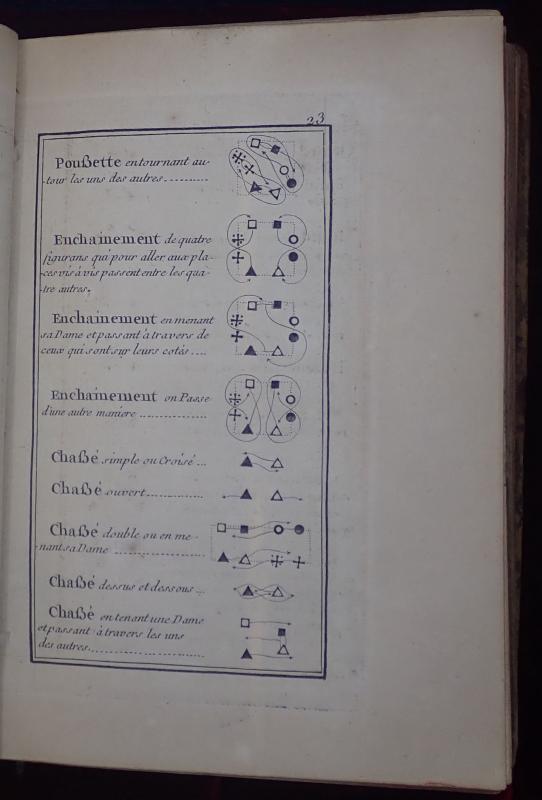 23
Poußette en tournant au-
-tour les uns des autres
Enchainement de quatre
figurans qui pour aller aux pla-
-ces vis à vis passent entre les qua-
-tre autres.
Enchainement en menant
sa Dame et passant à travers de
ceux qui sont sur leurs cotés
Enchainement on Passe
d'une autre maniere
Chaßé simple ou Croisé
Chaßé ouvert
Chaßé double ou en me-
-nant sa Dame
Chaßé dessus et dessous
Chaßé en tenant une Dame
et passant à travers les uns
des autres